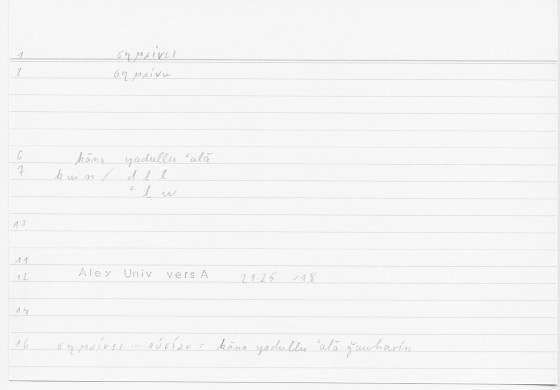 1 σημαίνει
2 σημαίνω
6 kāna yadullu ʿalā
7 k w n / d l l
ʿ l w
11
12 Alex Univ vers A 21.25 -18
14
16 σημαίνει – οὐσίαν = kāna yadullu ʿalā ǧauharin